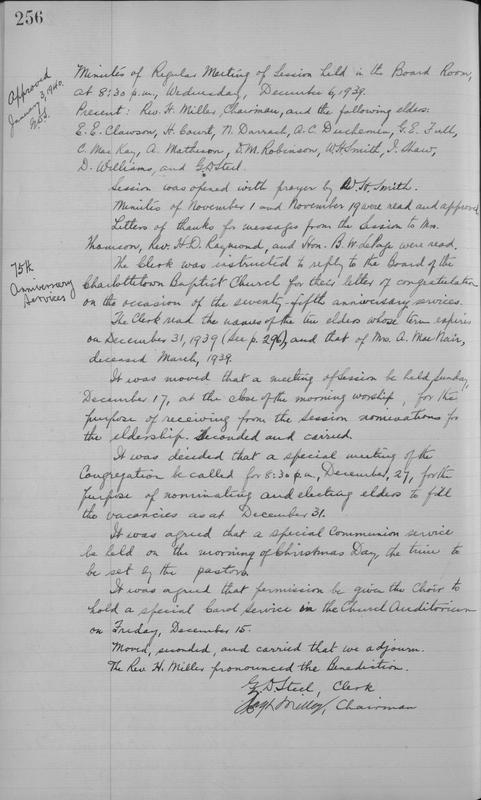 256
Approved
January 3, 1940.
G.D.S.
Minutes of Regular Meeting of Session held in the Board Room,
at 8:30 p.m., Wednesday, December 6, 1939.
Present: Rev. H. Miller, Chairman, and the following elders:
E.E. Clawson, H. Court, N. Darrach, A.C. Duchemin, G.E. Full,
C. MacKay, A. Matheson, D.M. Robinson, W.H. Smith, J. Shaw,
D. Williams, and G.D. Steel.
Session was opened with prayer by W.H. Smith.
Minutes of November 1 and November 19 were read and approved.
Letters of thanks for messages from the Session to Mrs.
Thomson, Rev. H.D. Raymond, and Hon. B.W. LePage were read.
75th
Anniversary
Services
The Clerk was instructed to reply to the Board of the
Charlottetown Baptist Church for their letter of congratulation
on the occasion of the seventy-fifth anniversary services.
The Clerk read the names of the ten elders whose term expires
on December 31, 1939 (See p. 296), and that of Mrs. A. MacNair,
deceased March, 1939.
It was moved that a meeting of Session be held, Sunday,
December 17, at the close of the morning worship, for the
purpose of receiving from the Session nominations for
the eldership. Seconded and carried.
It was decided that a special meeting of the
Congregation be called for 8:30 p.m., December, 27, for the
purpose of nominating and electing elders to fill
the vacancies as at December 31.
It was agreed that a special Communion service
be held on the morning of Christmas Day, the time to
be set by the pastor.
It was agreed that permission be given the Choir to
hold a special Carol Service in the Church Auditorium
on Friday, December 15.
Moved, seconded, and carried that we adjourn.
The Rev. H. Miller pronounced the Benediction.
G.D. Steel, Clerk
Miller, Chairman